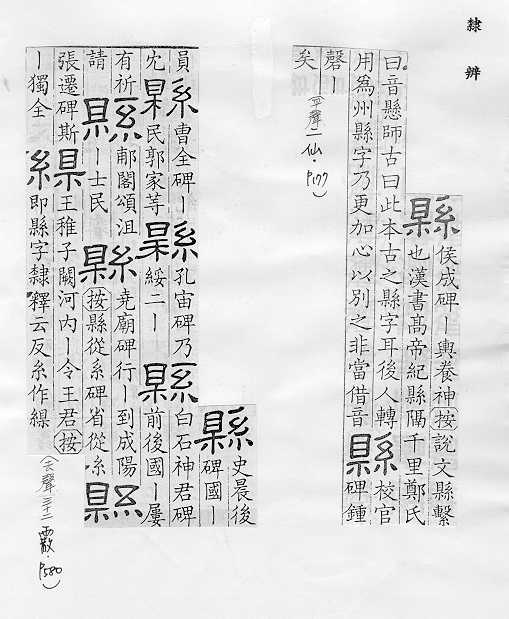 隸辨
縣 侯成碑ー輿養神按說文縣繫
也漢書高帝紀縣隔千里鄭氏
曰音懸師古曰此本古之縣字耳後人轉
用為州縣字乃更加心以別之非當借音
縣 校官
碑鍾
磬ー
矣
(平聲二仙．P177)
縣 史晨後
碑國ー
員
縣 曹全碑ー
民郭家等
縣 孔宙碑乃
綏二ー
縣 白石神君碑
前後國ー屢
有祈
請
縣 郙閣頌沮
ー士民
縣 堯廟碑行ー到成陽
按縣從系碑省從糸
縣
張遷碑斯
ー獨全
縣 王稚子闕河內ー令王君按
即縣字隸釋云反糸作
(去聲三十二霰．P580)